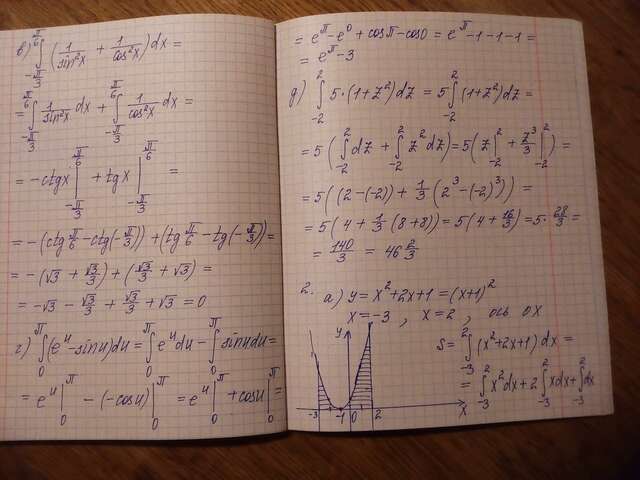 в) ∫_{-π/3}^{π/6} (1/sin²x + 1/cos²x)dx =
= ∫_{-π/3}^{π/6} 1/sin²x dx + ∫_{-π/3}^{π/6} 1/cos²x dx =
= -ctgx |_{-π/3}^{π/6} + tgx |_{-π/3}^{π/6} =
= -(ctg π/6 - ctg(-π/3)) + (tg π/6 - tg(-π/3)) =
= -(√3 + √3/3) + (√3/3 + √3) =
= -√3 - √3/3 + √3/3 + √3 = 0
г) ∫_0^π (e^u - sinu)du = ∫_0^π e^u du - ∫_0^π sinu du =
= e^u |_0^π - (-cosu) |_0^π = e^u |_0^π + cosu |_0^π =
= e^π - e^0 + cosπ - cos0 = e^π - 1 - 1 - 1 =
= e^π - 3
д) ∫_{-2}^{2} 5·(1+z²)dz = 5 ∫_{-2}^{2} (1+z²)dz =
= 5 (∫_{-2}^{2} dz + ∫_{-2}^{2} z² dz) = 5 (z |_{-2}^{2} + z³/3 |_{-2}^{2}) =
= 5 ((2-(-2)) + 1/3 (2³-(-2)³)) =
= 5 (4 + 1/3 (8+8)) = 5 (4 + 16/3) = 5· 28/3 =
= 140/3 = 46 2/3
2. а) y = x²+2x+1 = (x+1)²
x = -3 , x = 2 , ось ox
y
S = ∫_{-3}^{2} (x²+2x+1) dx =
= ∫_{-3}^{2} x²dx + 2 ∫_{-3}^{2} xdx + ∫_{-3}^{2} dx
-3 -1 0 2 x